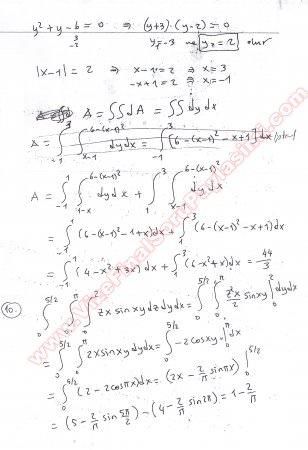 y² + y - 6 = 0 ⇒ (y+3)·(y-2) = 0
3
-2
y₁=-3 ve y₂=2 olur
|x-1| = 2 ⇒ x-1=2 ⇒ x=3
-x+1=2 ⇒ x=-1
A = ∫∫dA = ∫∫dy dx
A = ∫₋₁³ ∫ₓ₋₁^(6-(x-1)²) dy dx = ∫₋₁³ [6-(x-1)²-x+1] dx
A = ∫₋₁¹ ∫₁₋ₓ^(6-(x-1)²) dy dx + ∫₁³ ∫ₓ₋₁^(6-(x-1)²) dy dx
= ∫₋₁¹ (6-(x-1)²-1+x) dx + ∫₁³ (6-(x-1)²-x+1) dx
= ∫₋₁¹ (4-x²+3x) dx + ∫₁³ (6-x²+x) dx = 44/3
10. ∫₀^(5/2) ∫₀^π ∫₀² zx sin xy dz dy dx = ∫₀^(5/2) ∫₀^π z²x/2 sin xy |₀² dy dx
= ∫₀^(5/2) ∫₀^π 2x sin xy dy dx = ∫₀^(5/2) -2cos xy |₀^π dx
= ∫₀^(5/2) (2-2cos πx) dx = (2x - 2/π sin πx) |₀^(5/2)
= (5 - 2/π sin 5π/2) - (4 - 2/π sin 2π) = 1 - 2/π